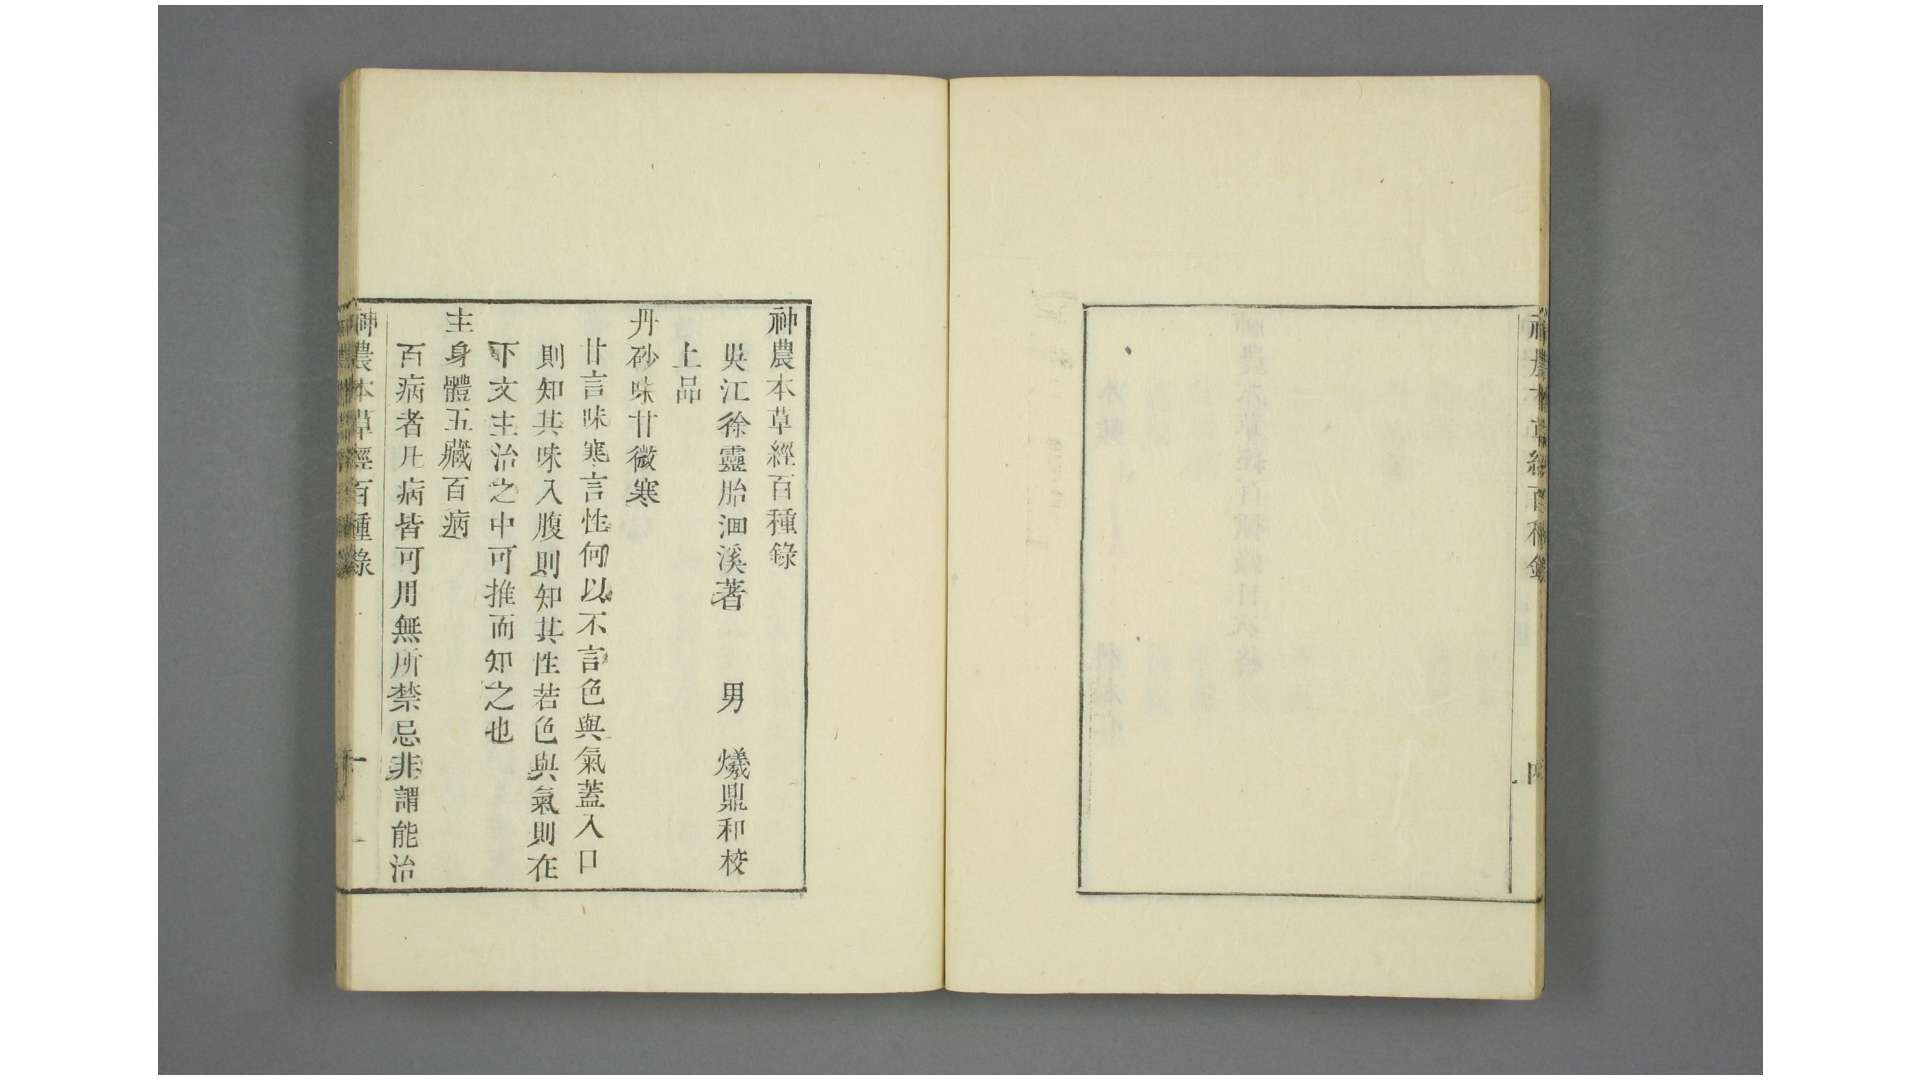 神農本草經百種錄
四
神農本草經百種錄
吳江徐靈胎洄溪著 男 爔鼎和校
上品
丹砂味甘微寒
甘言味寒言性何以不言色與氣蓋入口
則知其味入腹則知其性若色與氣則在
下文主治之中可推而知之也
主身體五藏百病
百病者凡病皆可用無所禁忌非謂能治
神農本草經百種錄
一